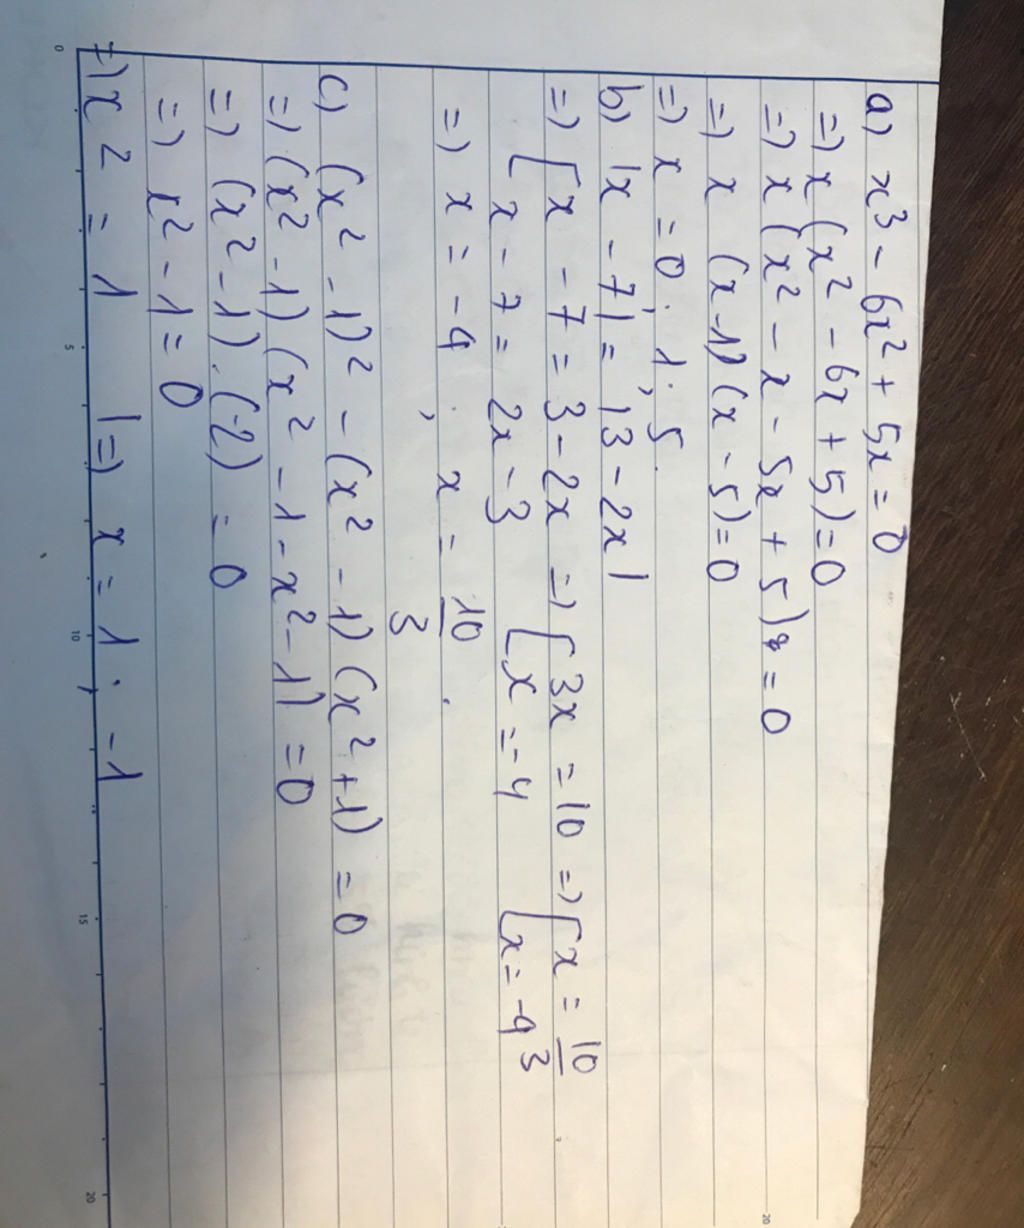 a) x³ - 6x² + 5x = 0
=) x (x² - 6x + 5) = 0
=) x (x² - x - 5x + 5) = 0
=) x (x-1) (x - 5) = 0
=) x = 0; 1; 5.
b) |x - 7| = |3 - 2x|
=) [ x - 7 = 3 - 2x =) [ 3x = 10 =) [ x = 10/3
[ x - 7 = 2x - 3 [ x = -4 [ x = -4
=) x = -4; x = 10/3.
c) (x² - 1)² - (x² - 1) (x² + 1) = 0
=) (x² - 1) (x² - 1 - x² - 1) = 0
=) (x² - 1). (-2) = 0
=) x² - 1 = 0
=) x² = 1 |=) x = 1; -1
0 5 10 15 20
20